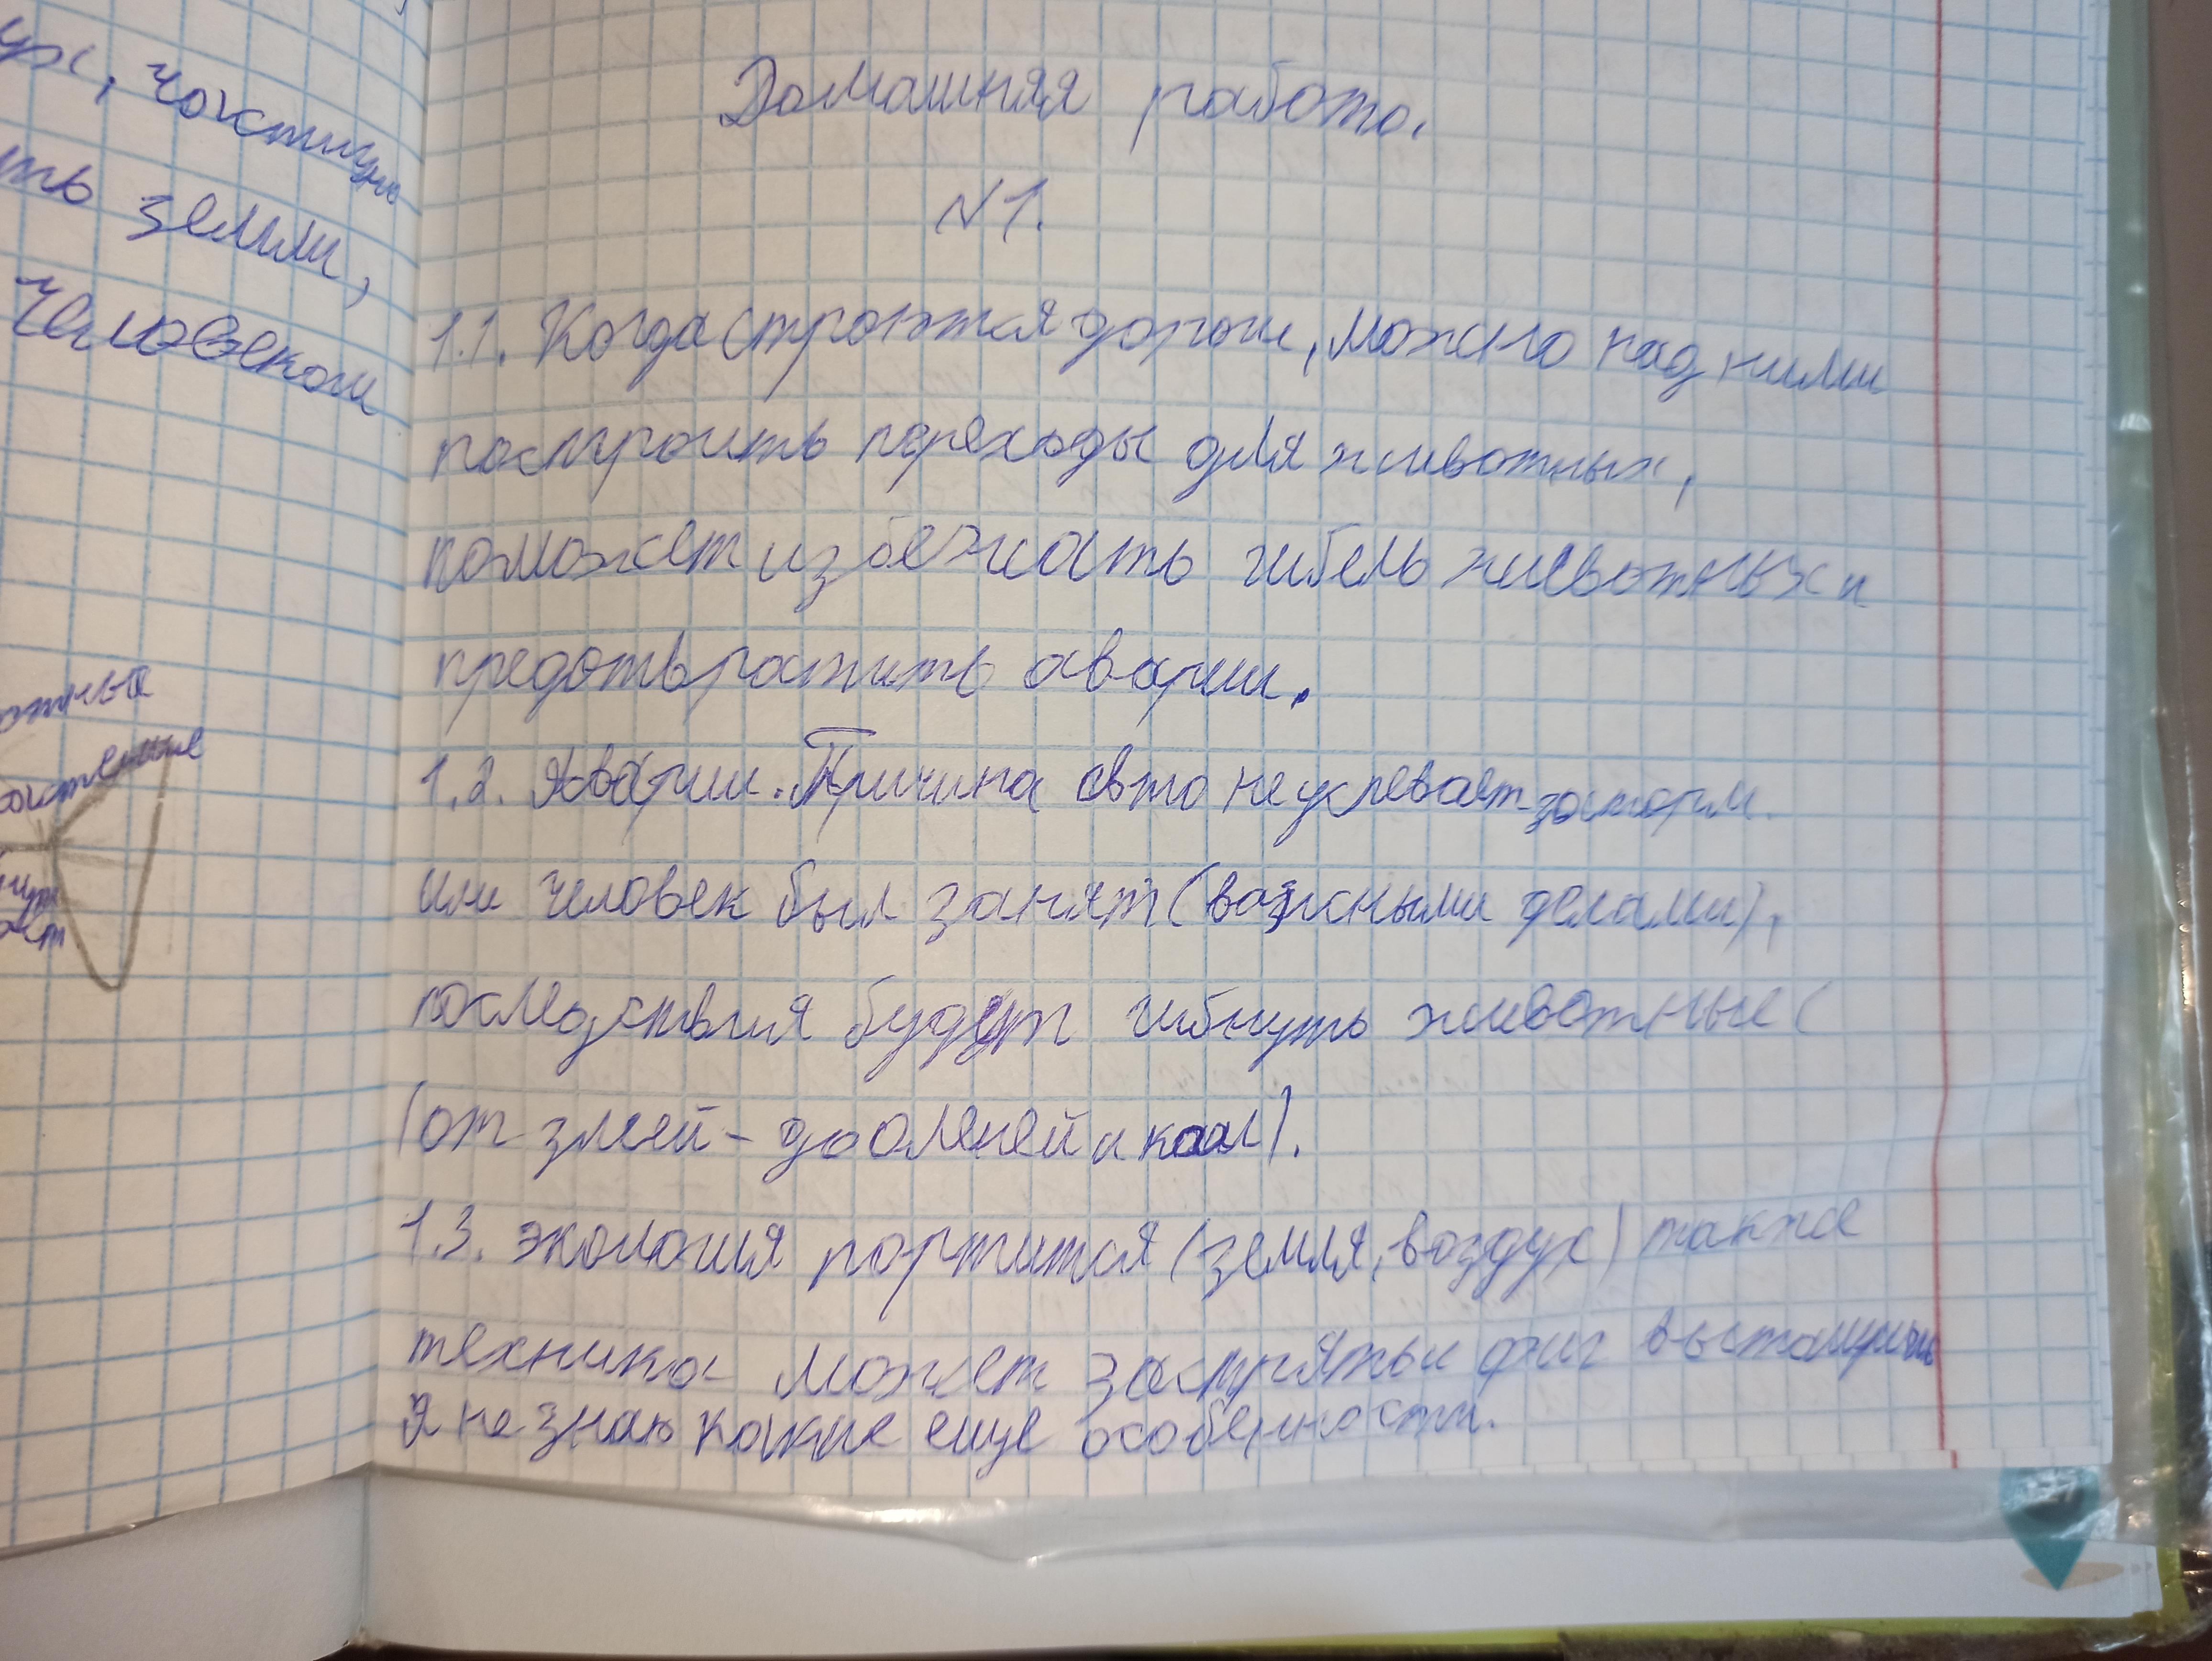 ух, частицу
ть земли,
человеком
Домашняя работа.
№1.
1.1. Когда строятся дороги, можно над ними
построить переходы для животных,
поможет избежать гибель животных и
предотвратить аварии.
1.2. Аварии. Причина авто не успевает заторм.
или человек был занят (важными делами),
последствия будут гибнуть животные (
(от змей - до оленей и коал).
1.3. экология портится (земля, воздух) также
техника может застрять и фиг вытащишь
я не знаю какие еще особенности.